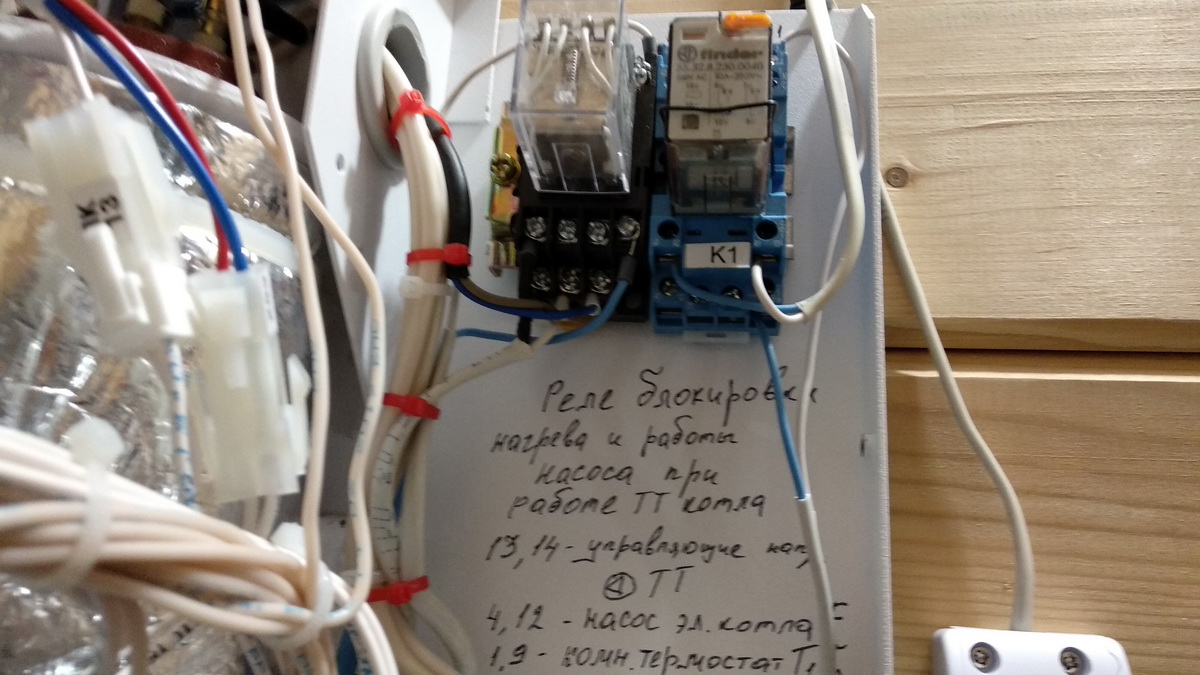 finder
K1
K
13
Реле блокировки
нагрева и работы
насоса при
работе ТТ котла
13, 14 - управляющие
ТТ
4, 12 - насос эл. котла
1, 9 - комн. термостат